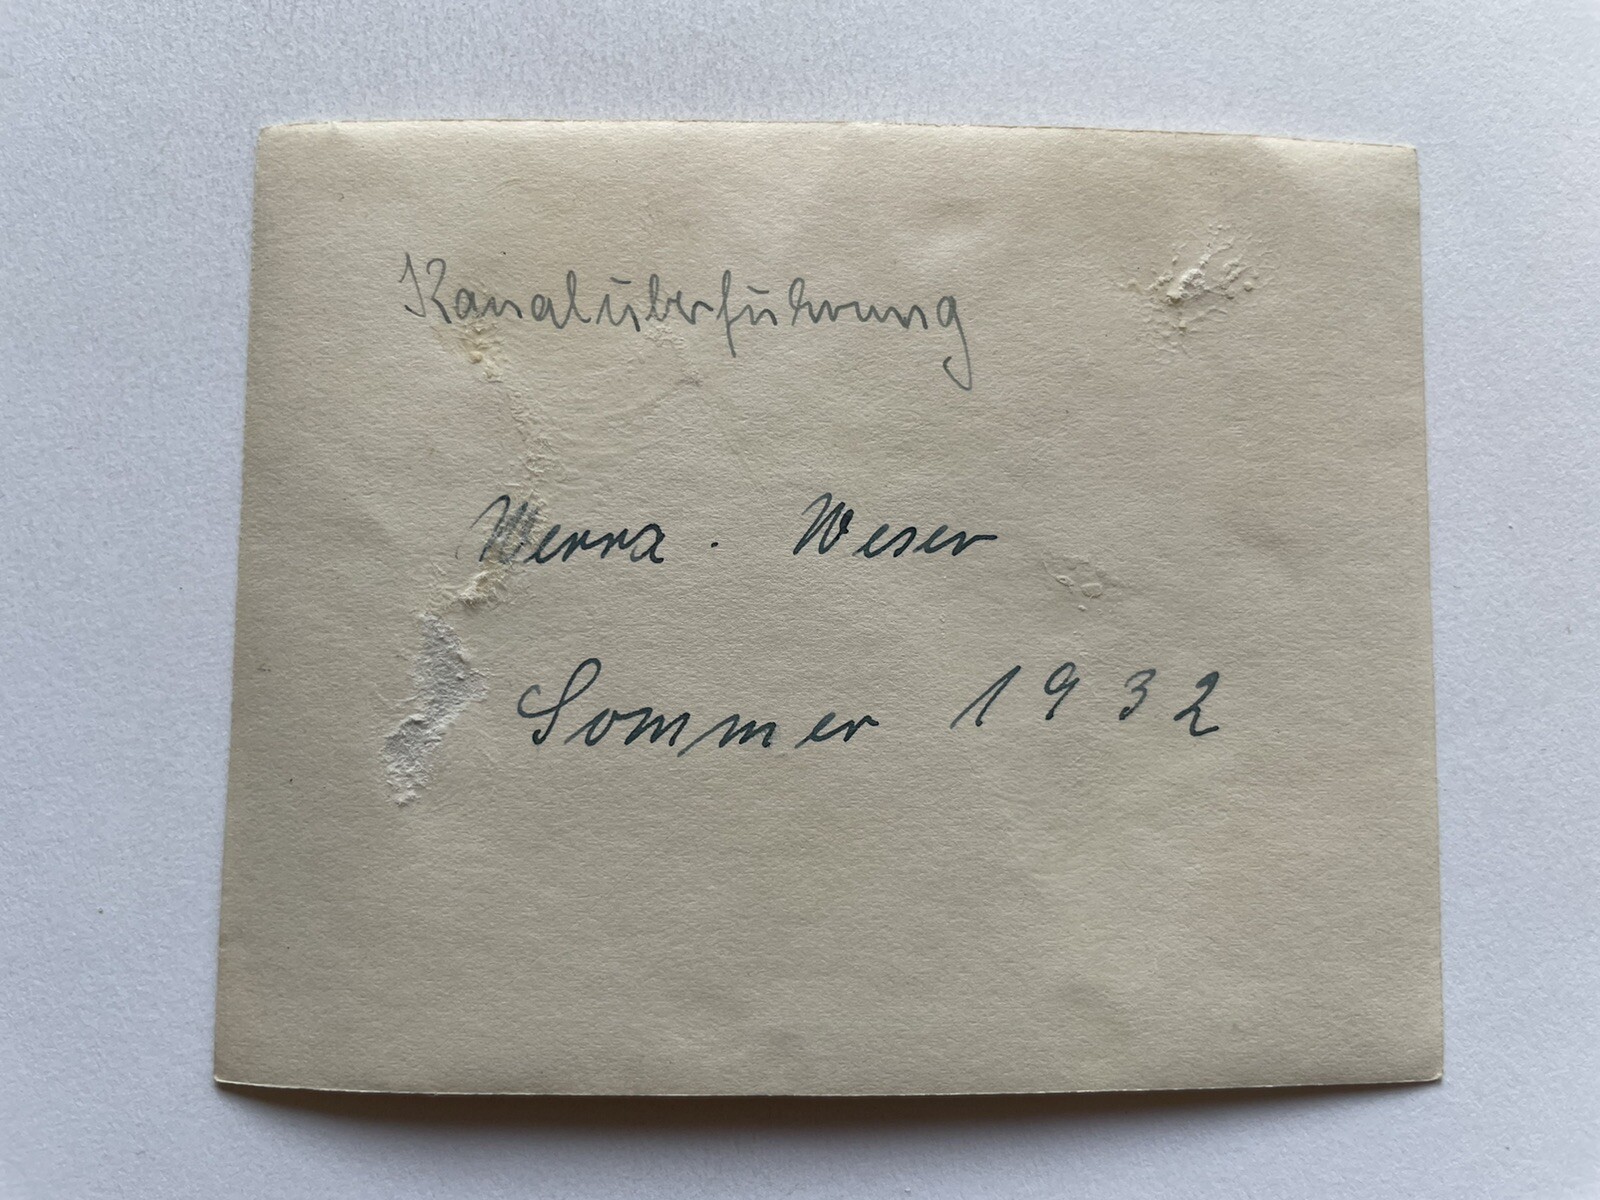 Kanalüberführung
Werra. Weser
Sommer 1932